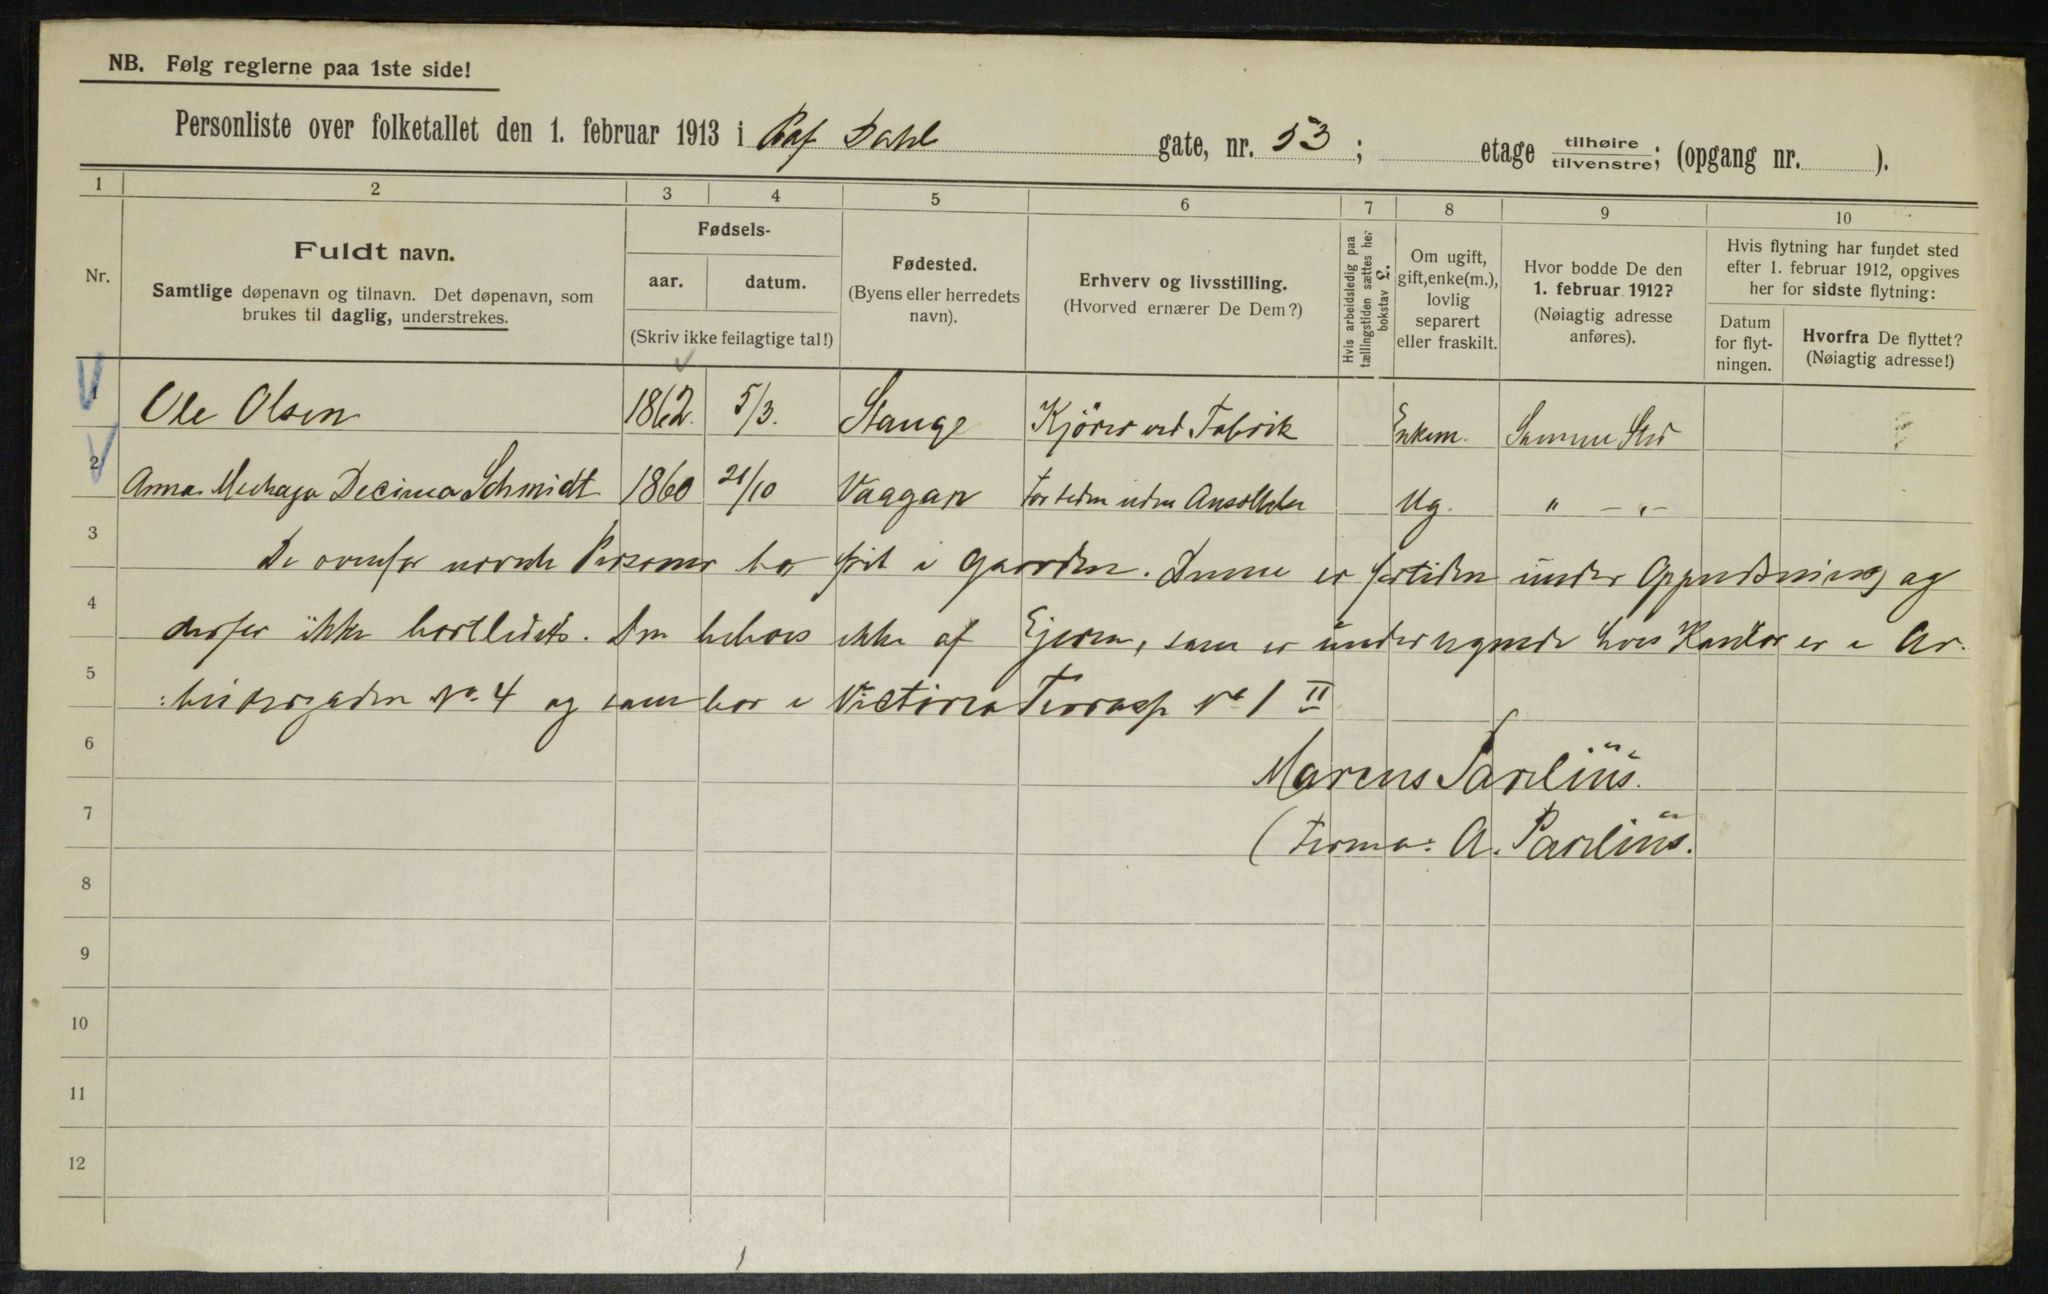 NB. Følg reglerne paa 1ste side!
Personliste over folketallet den 1. februar 1913 i Prof Dahl gate, nr. 53; etage tilhøire / tilvenstre; (opgang nr. ).
1 2 3 4 5 6 7 8 9 10
Nr.
Fuldt navn.
Samtlige døpenavn og tilnavn. Det døpenavn, som
brukes til daglig, understrekes.
Fødsels-
aar. datum.
(Skriv ikke feilagtige tal!)
Fødested.
(Byens eller herredets
navn).
Erhverv og livsstilling.
(Hvorved ernærer De Dem?)
Hvis arbeidsledig paa
tællingstiden sættes her
bokstav L.
Om ugift,
gift, enke(m.),
lovlig
separert
eller fraskilt.
Hvor bodde De den
1. februar 1912?
(Nøiagtig adresse
anføres).
Hvis flytning har fundet sted
efter 1. februar 1912, opgives
her for sidste flytning:
Datum
for flyt-
ningen.
Hvorfra De flyttet?
(Nøiagtig adresse!)
1 Ole Olsen 1862. 5/3. Stange Kjörer ved Fabrik Enkem. Samme Sted
2 Anna Decima Schmidt 1860 21/10 Vaagan For tiden uden Ug. " – " –
3 De ovenfor nævnte Personer bor frit i Gaarden. Denne er fortiden under og
4 derfor ikke bortleiet. Den beboes ikke af Ejeren, som er undertegnede hvis Kontor er i Ar-
5 :beidergaden No. 4 og som bor i Victoria Terrasse No 1 II
6 Marcus Parelius.
7 (Firma: A. Parelius.
8
9
10
11
12